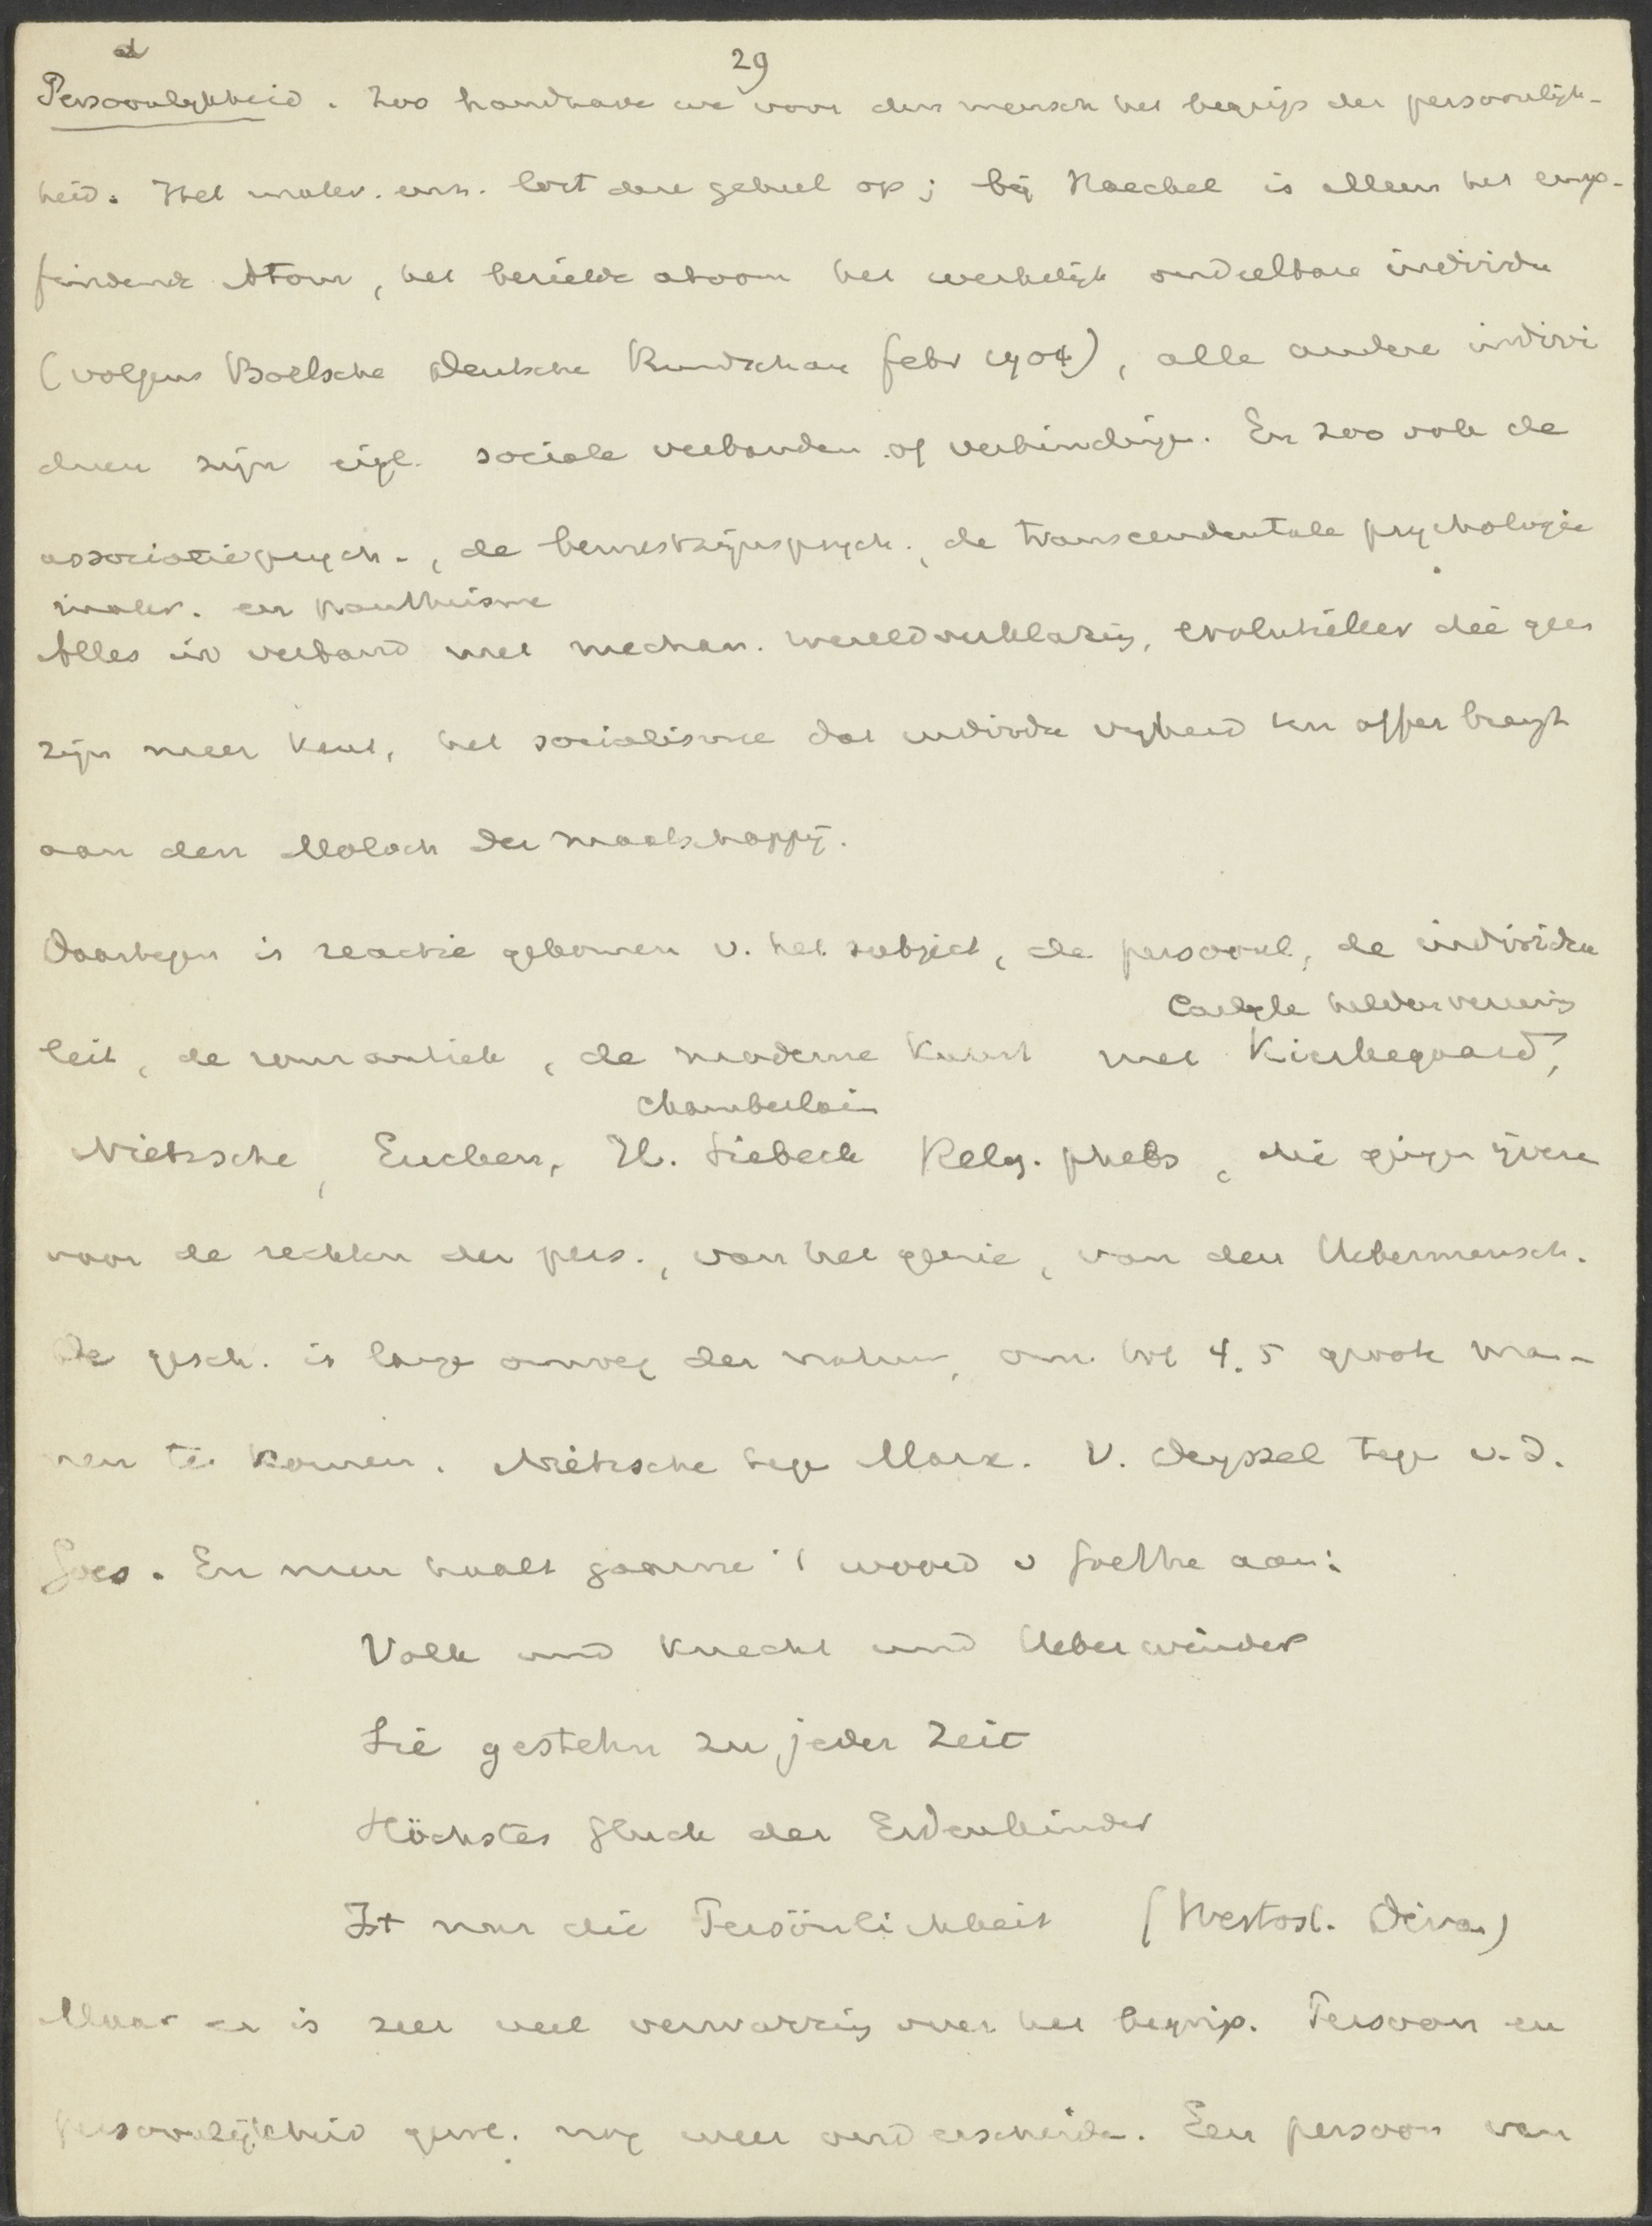 d
29
Persoonlijkheid. Zoo handhave we voor den mensch het begrip der persoonlijk-
heid. Het mater. en lost deze geheel op; bij Haeckel is alleen het emp-
findende Atom, het bezielde atoom het werkelijk ondeelbare individu
(volgens Boelsche Deutsche Rundschau febr 1904), alle andere indivi
duen zijn eigl. sociale verbanden of verbindingen. En zoo ook de
associatiepsych., de bewustzijnspsych., de transcendentale psychologie
mater. en pantheisme
Alles in verband met mechan. wereldverklaring, evolutieleer die geen
zijn meer kent, het socialisme dat individu vrijheid ten offer brengt
aan den Moloch der maatschappij.
Daartegen is reactie gekomen v. het subject, de persoonl., de individua
Carlyle heldenvereering
leit, de romantiek, de moderne kunst met Kierkegaard,
Chamberlain
Nietzsche, Eucken, H. Siebeck Relig. philos, die gingen ijveren
voor de rechten der pers., van het genie, van den Uebermensch.
De gesch. is lange omweg der natuur, om tot 4. 5 groote man-
nen te komen. Nietzsche tege Marx. V. Deyssel tege v.d.
Goes. En men haalt gaarne 't woord v Goethe aan:
Volk und Knecht und Ueberwinder
Sie gestehn zu jeder Zeit
Höchstes Gluck der Erdenkinder
Ist nur die Persönlichkeit (Westöstl. Divan)
Maar er is zeer veel verwarring over het begrip. Persoon en
persoonlijkheid gewl. nog weer onderscheiden. Een persoon van